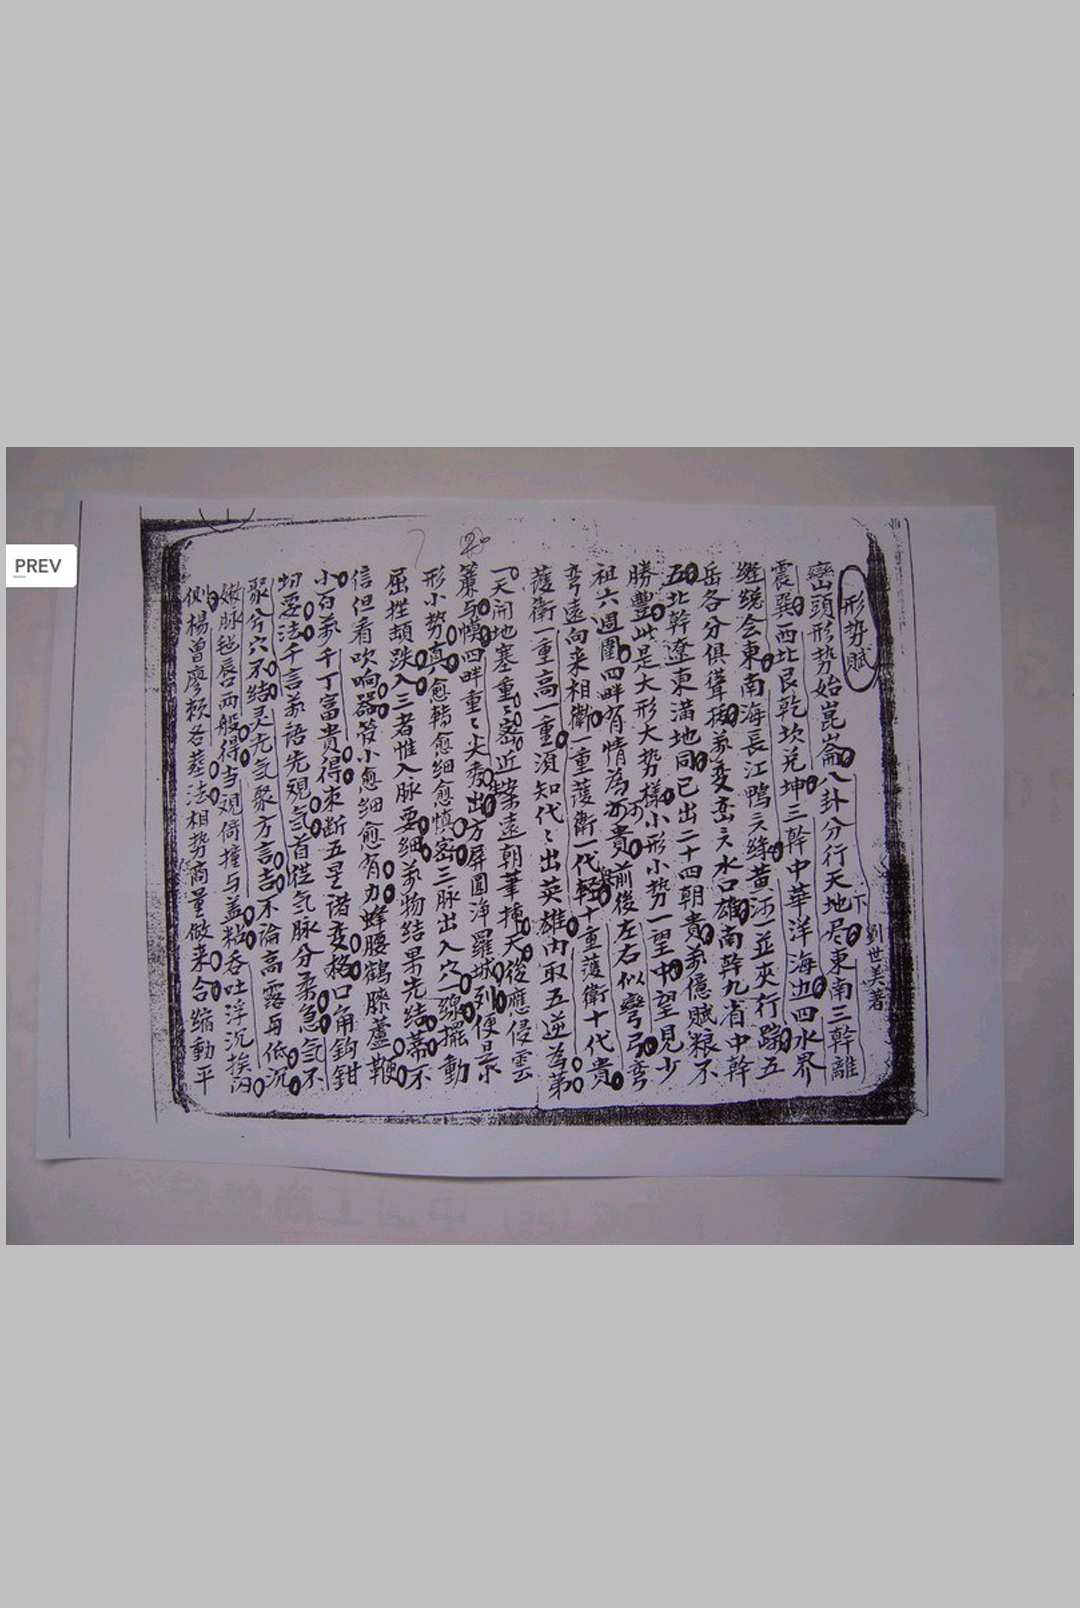 PREV
形势賦
劉世美著
巒頭形势始崑崙八卦分行天地尽東南三幹離
震巽西北艮乾坎兑坤三幹中華洋海边四水界
缠绕会東南海長江鴨綠黄河並夾行踪五
岳各分俱聳拔萬变峦水口雄南幹九省中幹
五北幹遼東满地同已出二十四朝貴萬億賦粮不
勝豐此是大形大势樣小形小势一望中望見少
祖六週圍四畔有情為亦貴前後左右似彎弓弯
弯遠向来相衛一重護衛一代軽十重護衛十代貴
護衛一重高一重須知代代出英雄内取五逆為第
一天闹地塞重重密近案遠朝筆挿天後應侵雲
簾与幙四畔重重尖秀出方屏圓净羅城列便是
形小势真愈轉愈细愈慎密三脉出入穴一線擺動
屈揑頡跌入三者惟入脉要细萬物结果先结蒂不
信但看吹响器管小愈细愈有力蜂腰鶴膝蘆鞭
小百萬千丁富贵得束断五星诸变格口角鈎鉗
切要法千言萬語先观气首從气脉分柔急气不
聚兮穴不结灵光气聚方言吉不論高露与低沉
嫩脉毡唇两般得当观倚撞与盖粘吞吐浮沉挨闪
似楊曾廖赖各葬法相势商量做来合缩動平